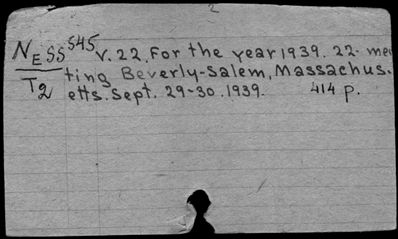 2
NESS S45 V. 22. For the year 1939. 22- mee
T2 ting Beverly-Salem, Massachus.
etts. Sept. 29-30. 1939. 414 p.